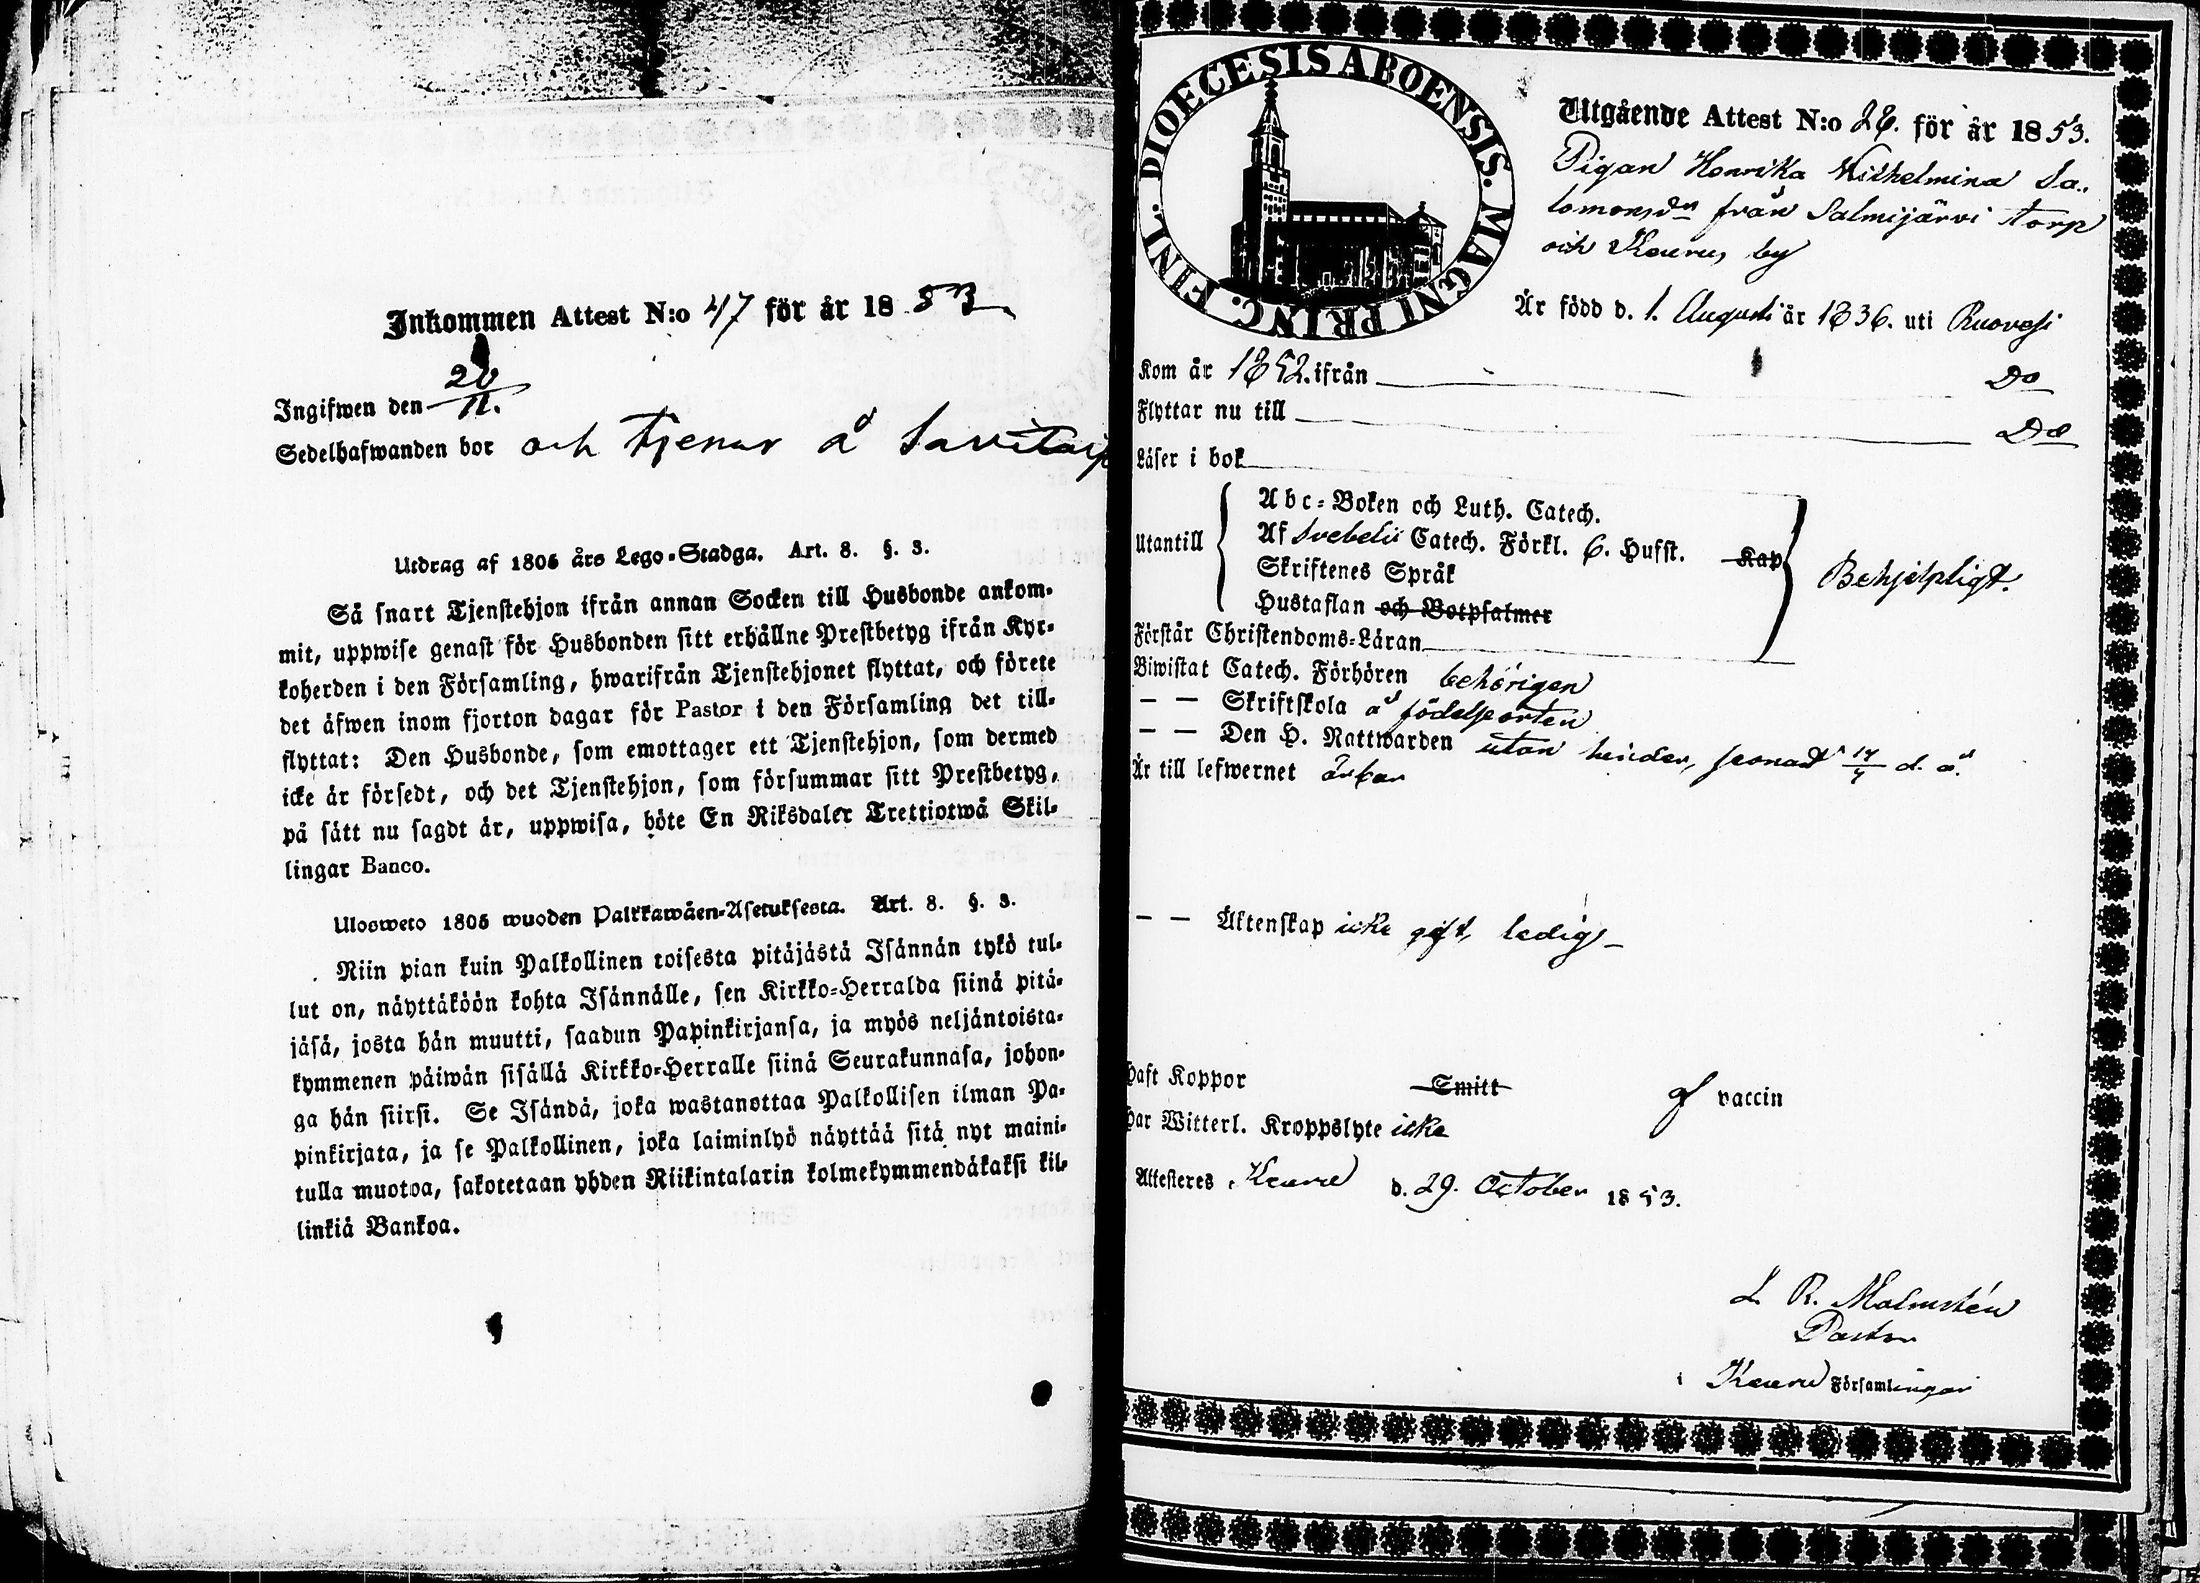 Inkommen Attest N:o 47 för år 1853
Ingifwen den 20/11.
Sedelhafwanden bor och tjenar å
Utdrag af 1805 års Lego-Stadga. Art. 8. §. 3.
Så snart Tjenstehjon ifrån annan Socken till Husbonde ankom-
mit, uppwise genast för Husbonden sitt erhållne Prestbetyg ifrån Kyr-
koherden i den Församling, hwarifrån Tjenstehjonet flyttat, och förete
det äfwen inom fjorton dagar för Pastor i den Församling det till-
flyttat: Den Husbonde, som emottager ett Tjenstehjon, som dermed
icke är försedt, och det Tjenstehjon, som försummar sitt Prestbetyg,
på sätt nu sagdt är, uppwisa, böte En Riksdaler Trettiotwå Skil-
lingar Banco.
Ulosweto 1805 wuoden Palkkawäen-Asetuksesta. Art. 8. §. 3.
Niin pian kuin Palkollinen toisesta pitäjästä Isännän tykö tul-
lut on, näyttäköön kohta Isännälle, sen Kirkko-Herralda siinä pitä-
jäsä, josta hän muutti, saadun Papinkirjansa, ja myös neljäntoista-
kymmenen päiwän sisällä Kirkko-Herralle siinä Seurakunnasa, johon-
ga hän siirsi. Se Isändä, joka wastanottaa Palkollisen ilman Pa-
pinkirjata, ja se Palkollinen, joka laiminlyö näyttää sitä nyt maini-
tulla muotoa, sakotetaan yhden Riikintalarin kolmekymmendäkaksi kil-
linkiä Bankoa.
DIOECESIS ABOENSIS. MAGNI PRINC. FINL.
Utgående Attest N:o 28. för år 1853.
Pigan Henrika Wilhelmina Sa-
lomonsdn från Salmijärvi torp
och Keuru by
Är född d. 1. Augusti år 1836. uti Ruovesi
Kom år 1852. ifrån Do
Flyttar nu till Do
Läser i bok
Abc-Boken och Luth. Catech.
Utantill Af Svebelii Catech. Förkl. 6. Hufst. Kap
Skriftenes Språk
Behjelpligt.
Hustaflan och Botpsalmer
Förstår Christendoms-Läran
Biwistat Catech. Förhören behörigen
— — Skriftskola å födelseorten
— — Den H. Nattwarden utan hinder, senast 17/7 d. å.
Är till lefwernet ärbar
— — Äktenskap icke gift, ledig
Haft Koppor Smitt af vaccin
Har Witterl. Kroppslyte icke
Attesteres, Keuru d. 29. October 1853.
L. R. Malmstén
Pastor
i Keuru Församlingar